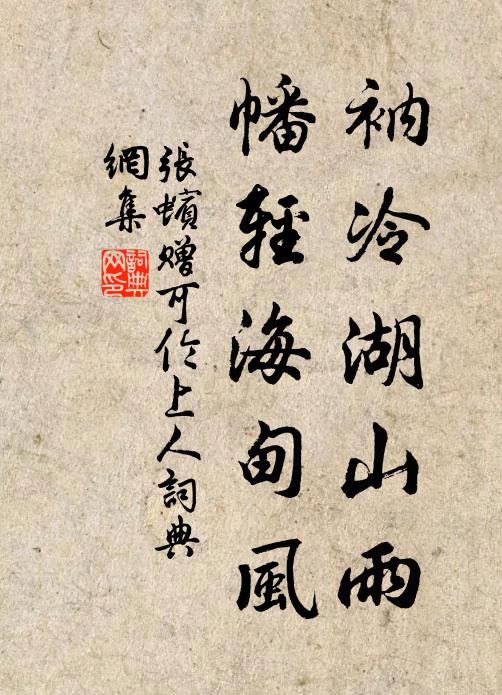 衲冷湖山雨
幡輕海甸風
張蠙贈可伦上人詞典
網集
詞典
网印